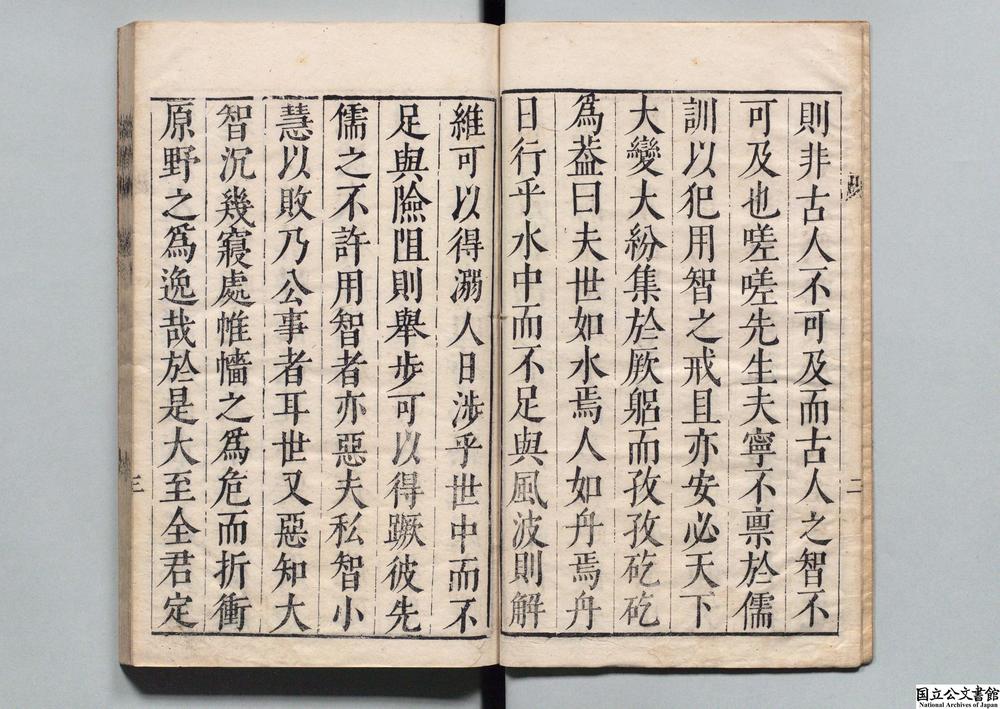 則非古人不可及而古人之智不
可及也嗟嗟先生夫寧不稟於儒
訓以犯用智之戒且亦安必天下
大變大紛集於厥躳而孜孜矻矻
爲葢曰夫世如水焉人如舟焉舟
日行乎水中而不足與風波則解
二
維可以得溺人日涉乎世中而不
足與險阻則舉步可以得蹶彼先
儒之不許用智者亦惡夫私智小
慧以敗乃公事者耳世又惡知大
智沉幾寢處帷幬之爲危而折衝
原野之爲逸哉於是大至全君定
三
国立公文書館
National Archives of Japan